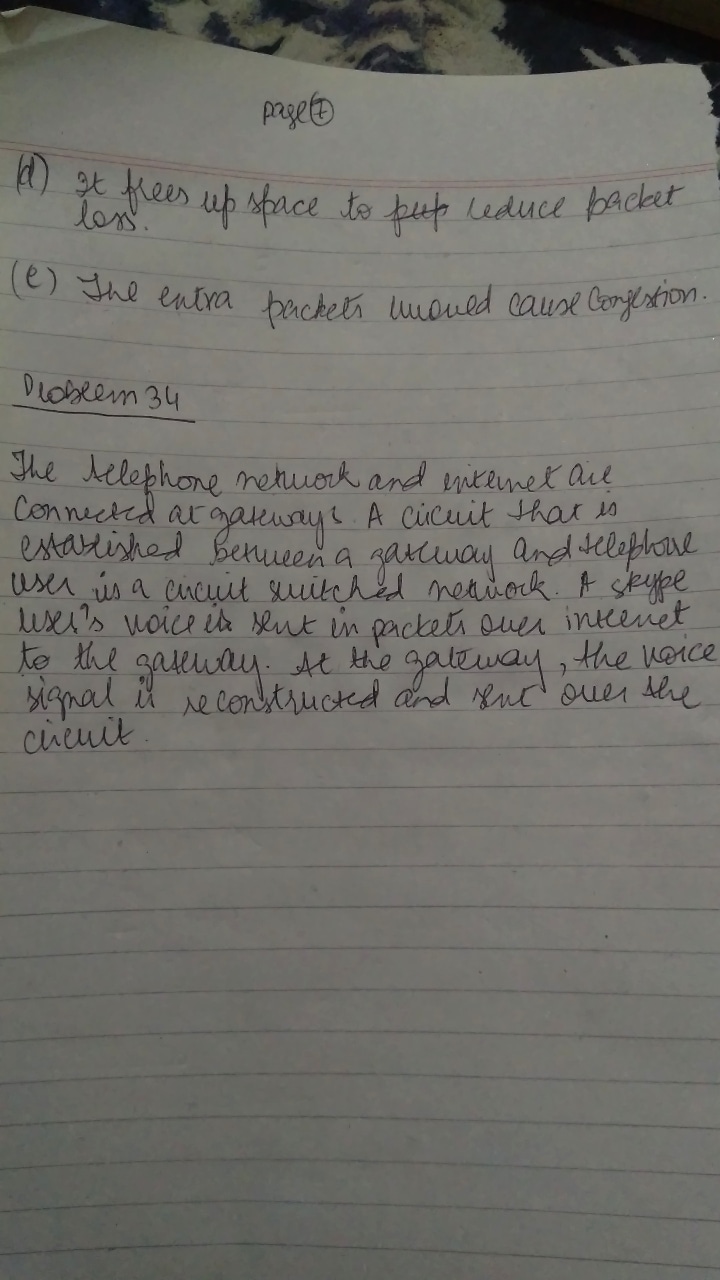 page 7
(d) It frees up space to pup reduce packet
loss.
(e) The extra packets moved cause Congestion.
Problem 34
The telephone network and internet are
Connected at gateways. A circuit that is
established between a gateway and telephone
user is a circuit switched network. A skype
user's voice is sent in packets over internet
to the gateway. At the gateway, the voice
signal is reconstructed and sent over the
circuit.